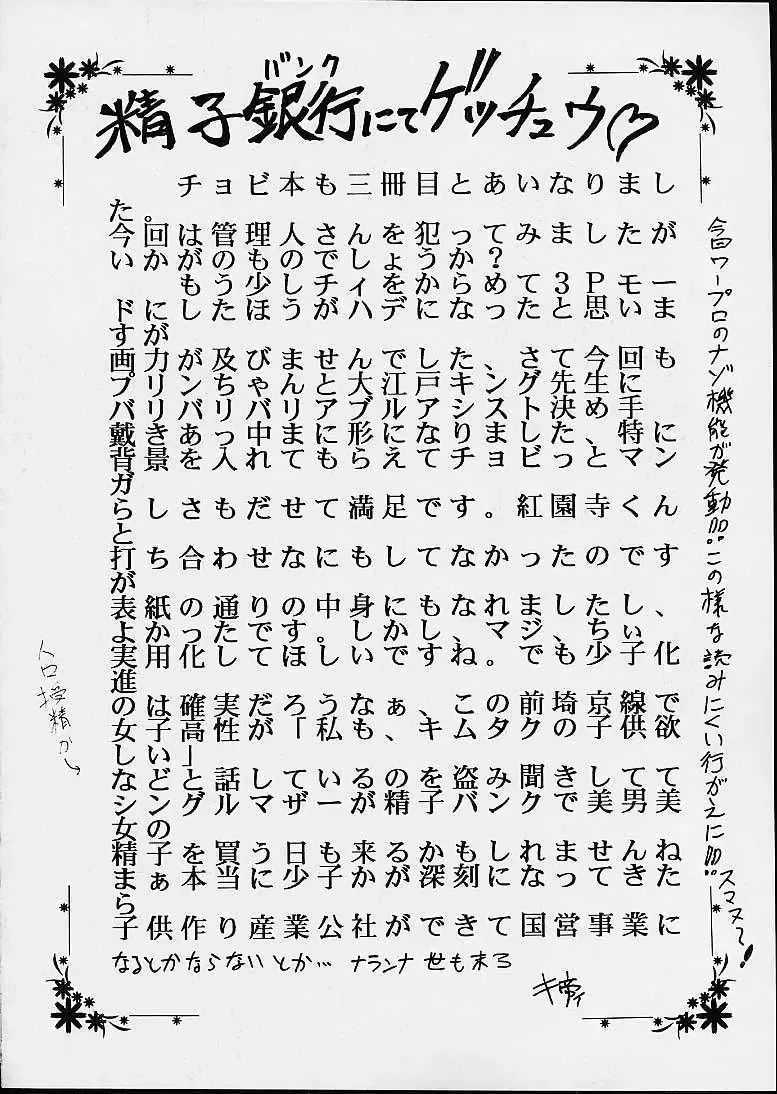 バンク
精子銀行にてゲッチュウ♡
チョビ本も三冊目とあいなりまし
た。今回は管理人さんを犯ってみましたが
いかがのもでしょうか？
もう少しチィをからめて3Pモー
ドにしたほうがハデになったと思いま
すが
画力が及びませんでした、さて今回も
プリンちゃんと大江戸キング先生に
バリバリバリアブルアシスト決め手
戴きあり中まにになりました、特に
背景を入れてもらえてチョビっとマン
ガらしさもだせて満足です。紅園寺くん
と
打ち合わせなにもしてなかったのです
が
表紙の通りの中身にもなれましたし、
よかったです。しかし、マジちぃ
実用化してほしいですね。でも少子化
進
のは確実だろうなぁ、この前埼京線で
女子高性が「私もキムタクの子供欲
しい」と、話しているのを盗み聞きして
などグルマザーが精子バンクで美男美
シン
女の
精子を買うに日も来るかもしれませんね
まぁ本当に少子かが深刻になってきた
ら
子供作り産業公社ができて国営事業に
なるとかならないとか… ナランナ 世も末ろ
今回ワープロのナゾ機能が発動!!!この様な読みにくい行がえに!!!スマヌ〜!
人口授精か